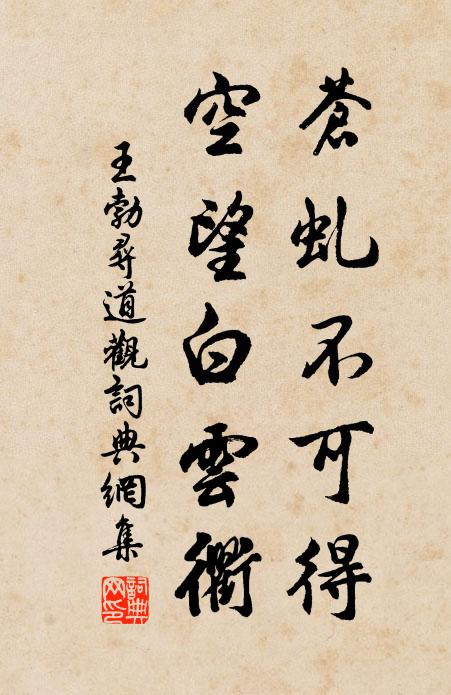 蒼虬不可得
空望白雲衢
王勃尋道觀詞典網集
詞典網印